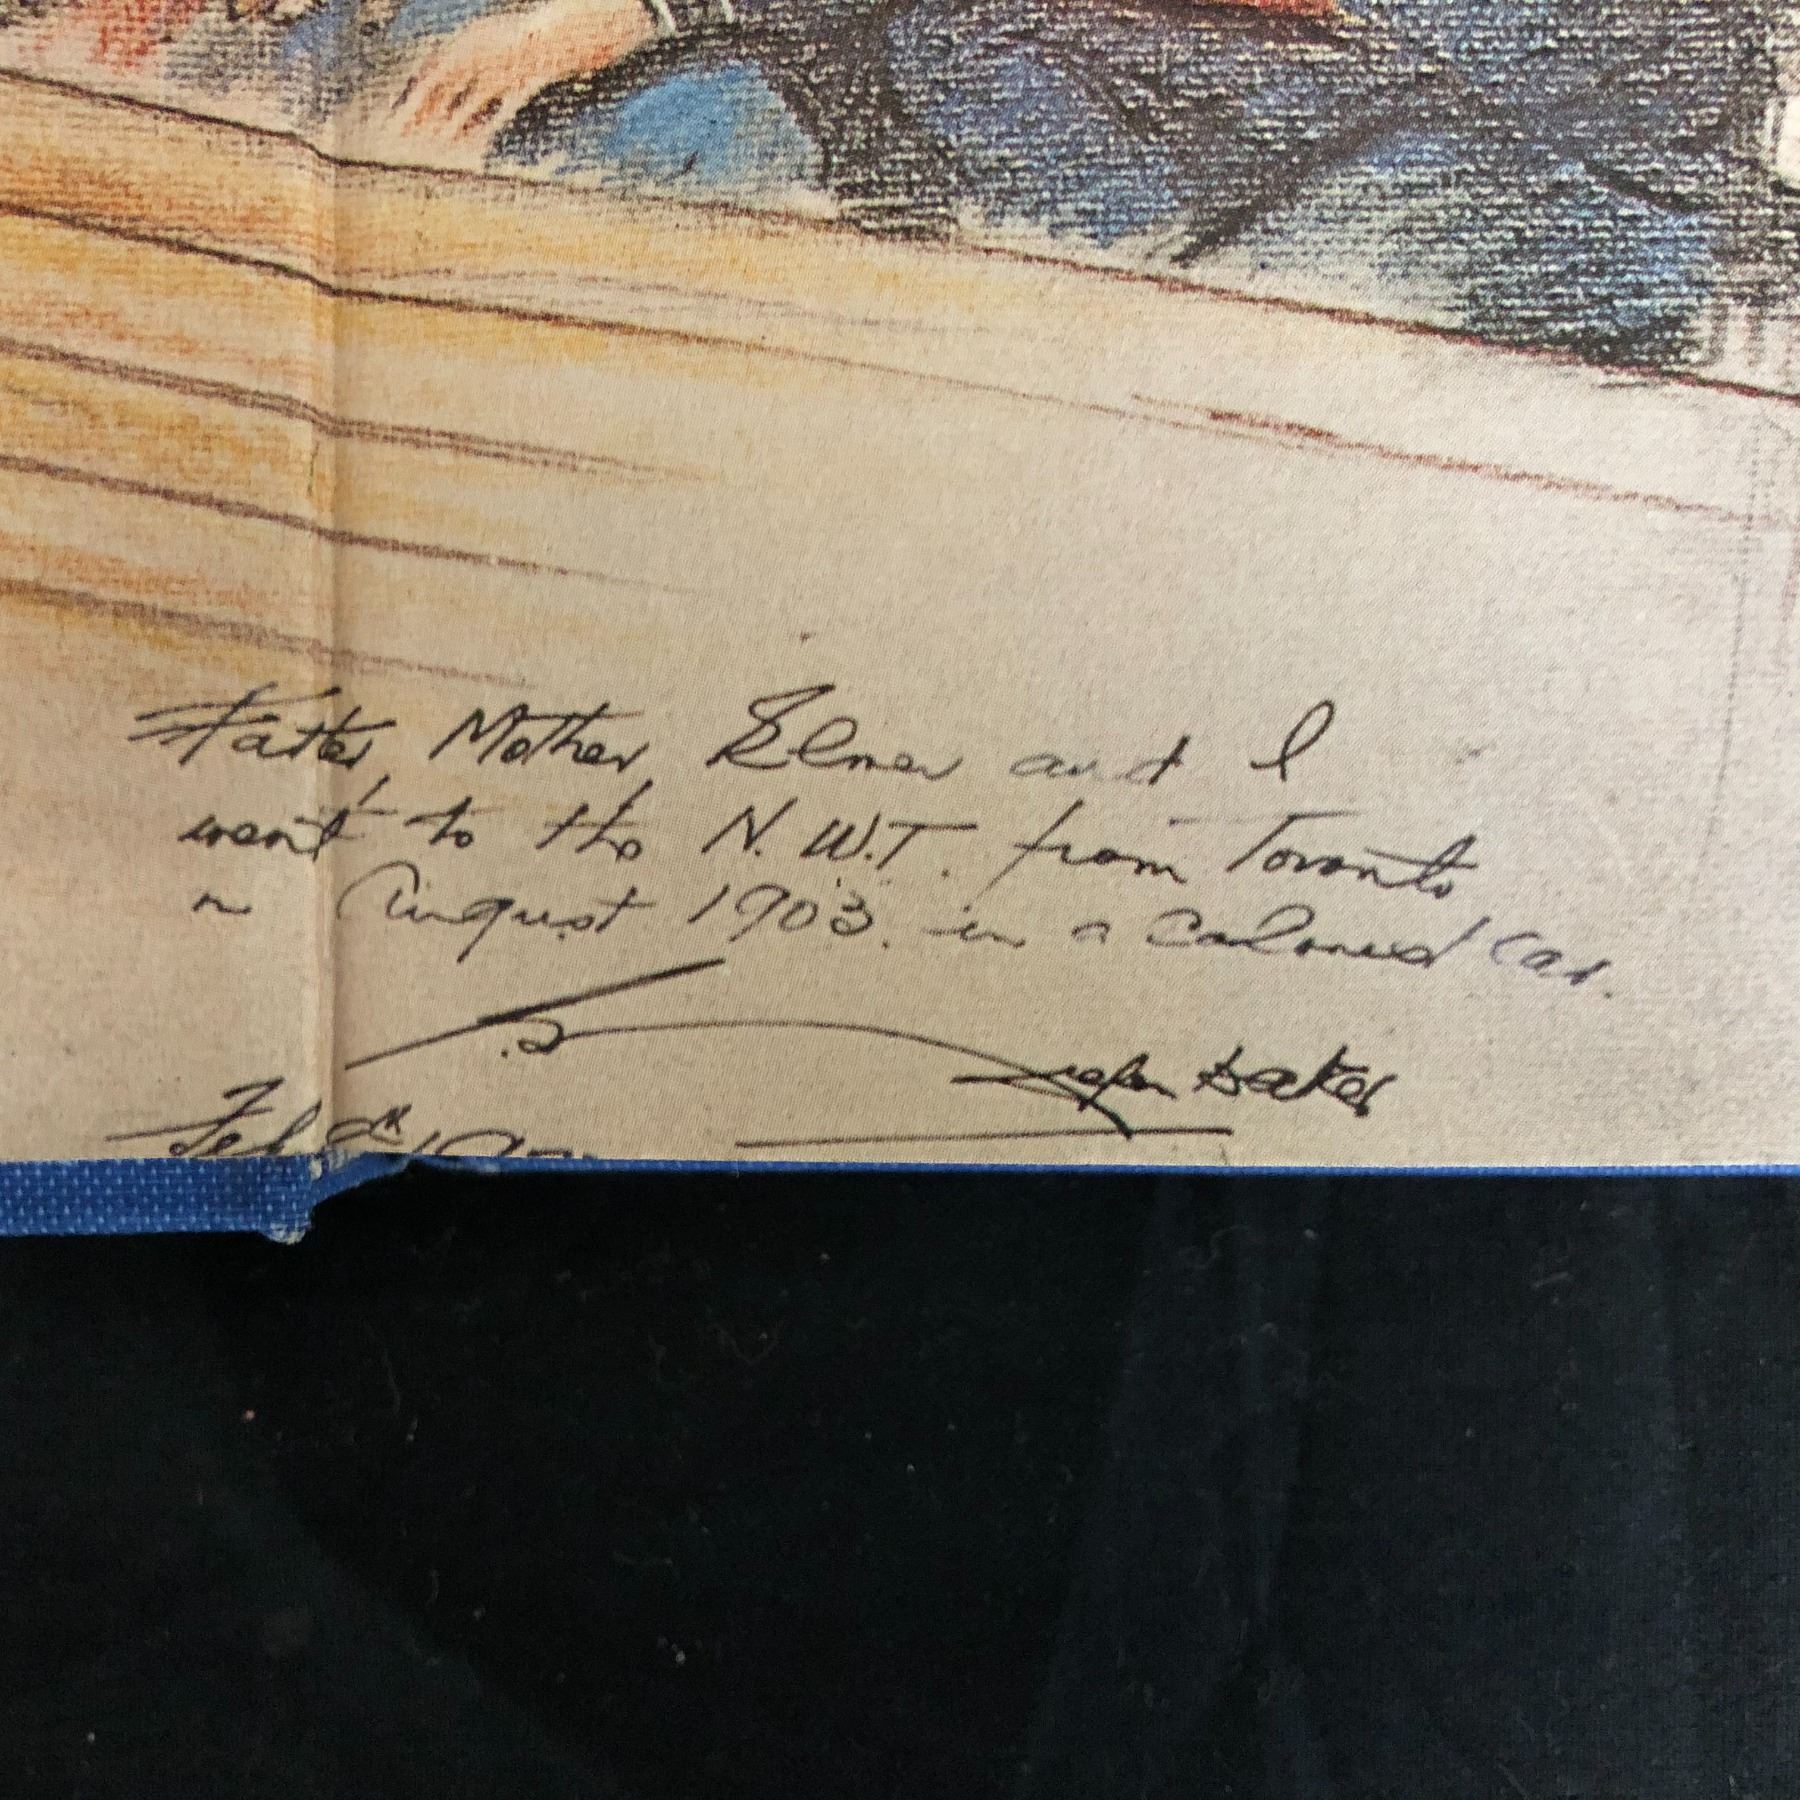 Father, Mother, Elmer and I
went to the N.W.T. from Toronto
in August 1903. in a colonist car.
J. G. Diefenbaker
Feb